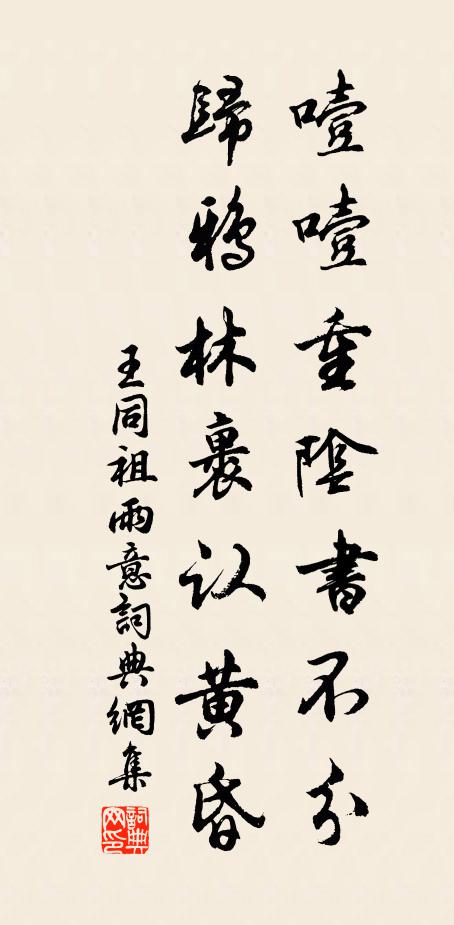 噎噎重陰書不分
歸鴉林裏认黄昏
王同祖雨意詞典網集
詞典网印